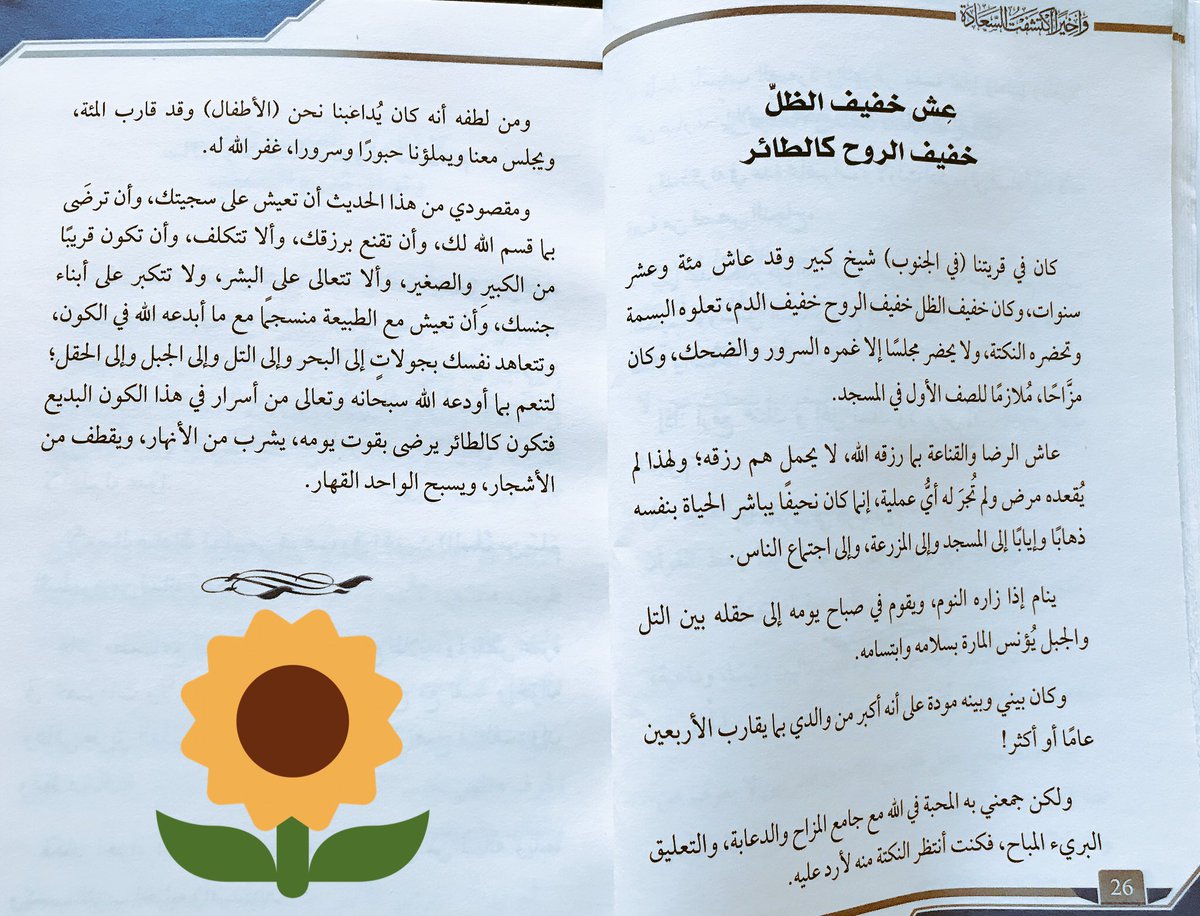 وأخيرا اكتشفت السعادة
عِش خفيف الظلّ
خفيف الروح كالطائر
كان في قريتنا (في الجنوب) شيخ كبير وقد عاش مئة وعشر
سنوات، وكان خفيف الظل خفيف الروح خفيف الدم، تعلوه البسمة
وتحضره النكتة، ولا يحضر مجلسًا إلا غمره السرور والضحك، وكان
مزَّاحًا، مُلازمًا للصف الأول في المسجد.
عاش الرضا والقناعة بما رزقه الله، لا يحمل هم رزقه؛ ولهذا لم
يُقعده مرض ولم تُجرَ له أيُّ عملية، إنما كان نحيفًا يباشر الحياة بنفسه
ذهابًا وإيابًا إلى المسجد وإلى المزرعة، وإلى اجتماع الناس.
ينام إذا زاره النوم، ويقوم في صباح يومه إلى حقله بين التل
والجبل يُؤنس المارة بسلامه وابتسامه.
وكان بيني وبينه مودة على أنه أكبر من والدي بما يقارب الأربعين
عامًا أو أكثر!
ولكن جمعني به المحبة في الله مع جامع المزاح والدعابة، والتعليق
البريء المباح، فكنت أنتظر النكتة منه لأرد عليه.
26
ومن لطفه أنه كان يُداعبنا نحن (الأطفال) وقد قارب المئة،
ويجلس معنا ويملؤنا حبورًا وسرورا، غفر الله له.
ومقصودي من هذا الحديث أن تعيش على سجيتك، وأن ترضَى
بما قسم الله لك، وأن تقنع برزقك، وألا تتكلف، وأن تكون قريبًا
من الكبيرِ والصغير، وألا تتعالى على البشر، ولا تتكبر على أبناء
جنسك، وَأن تعيش مع الطبيعة منسجمًا مع ما أبدعه الله في الكون،
وتتعاهد نفسك بجولاتٍ إلى البحر وإلى التل وإلى الجبل وإلى الحقل؛
لتنعم بما أودعه الله سبحانه وتعالى من أسرار في هذا الكون البديع
فتكون كالطائر يرضى بقوت يومه، يشرب من الأنهار، ويقطف من
الأشجار، ويسبح الواحد القهار.